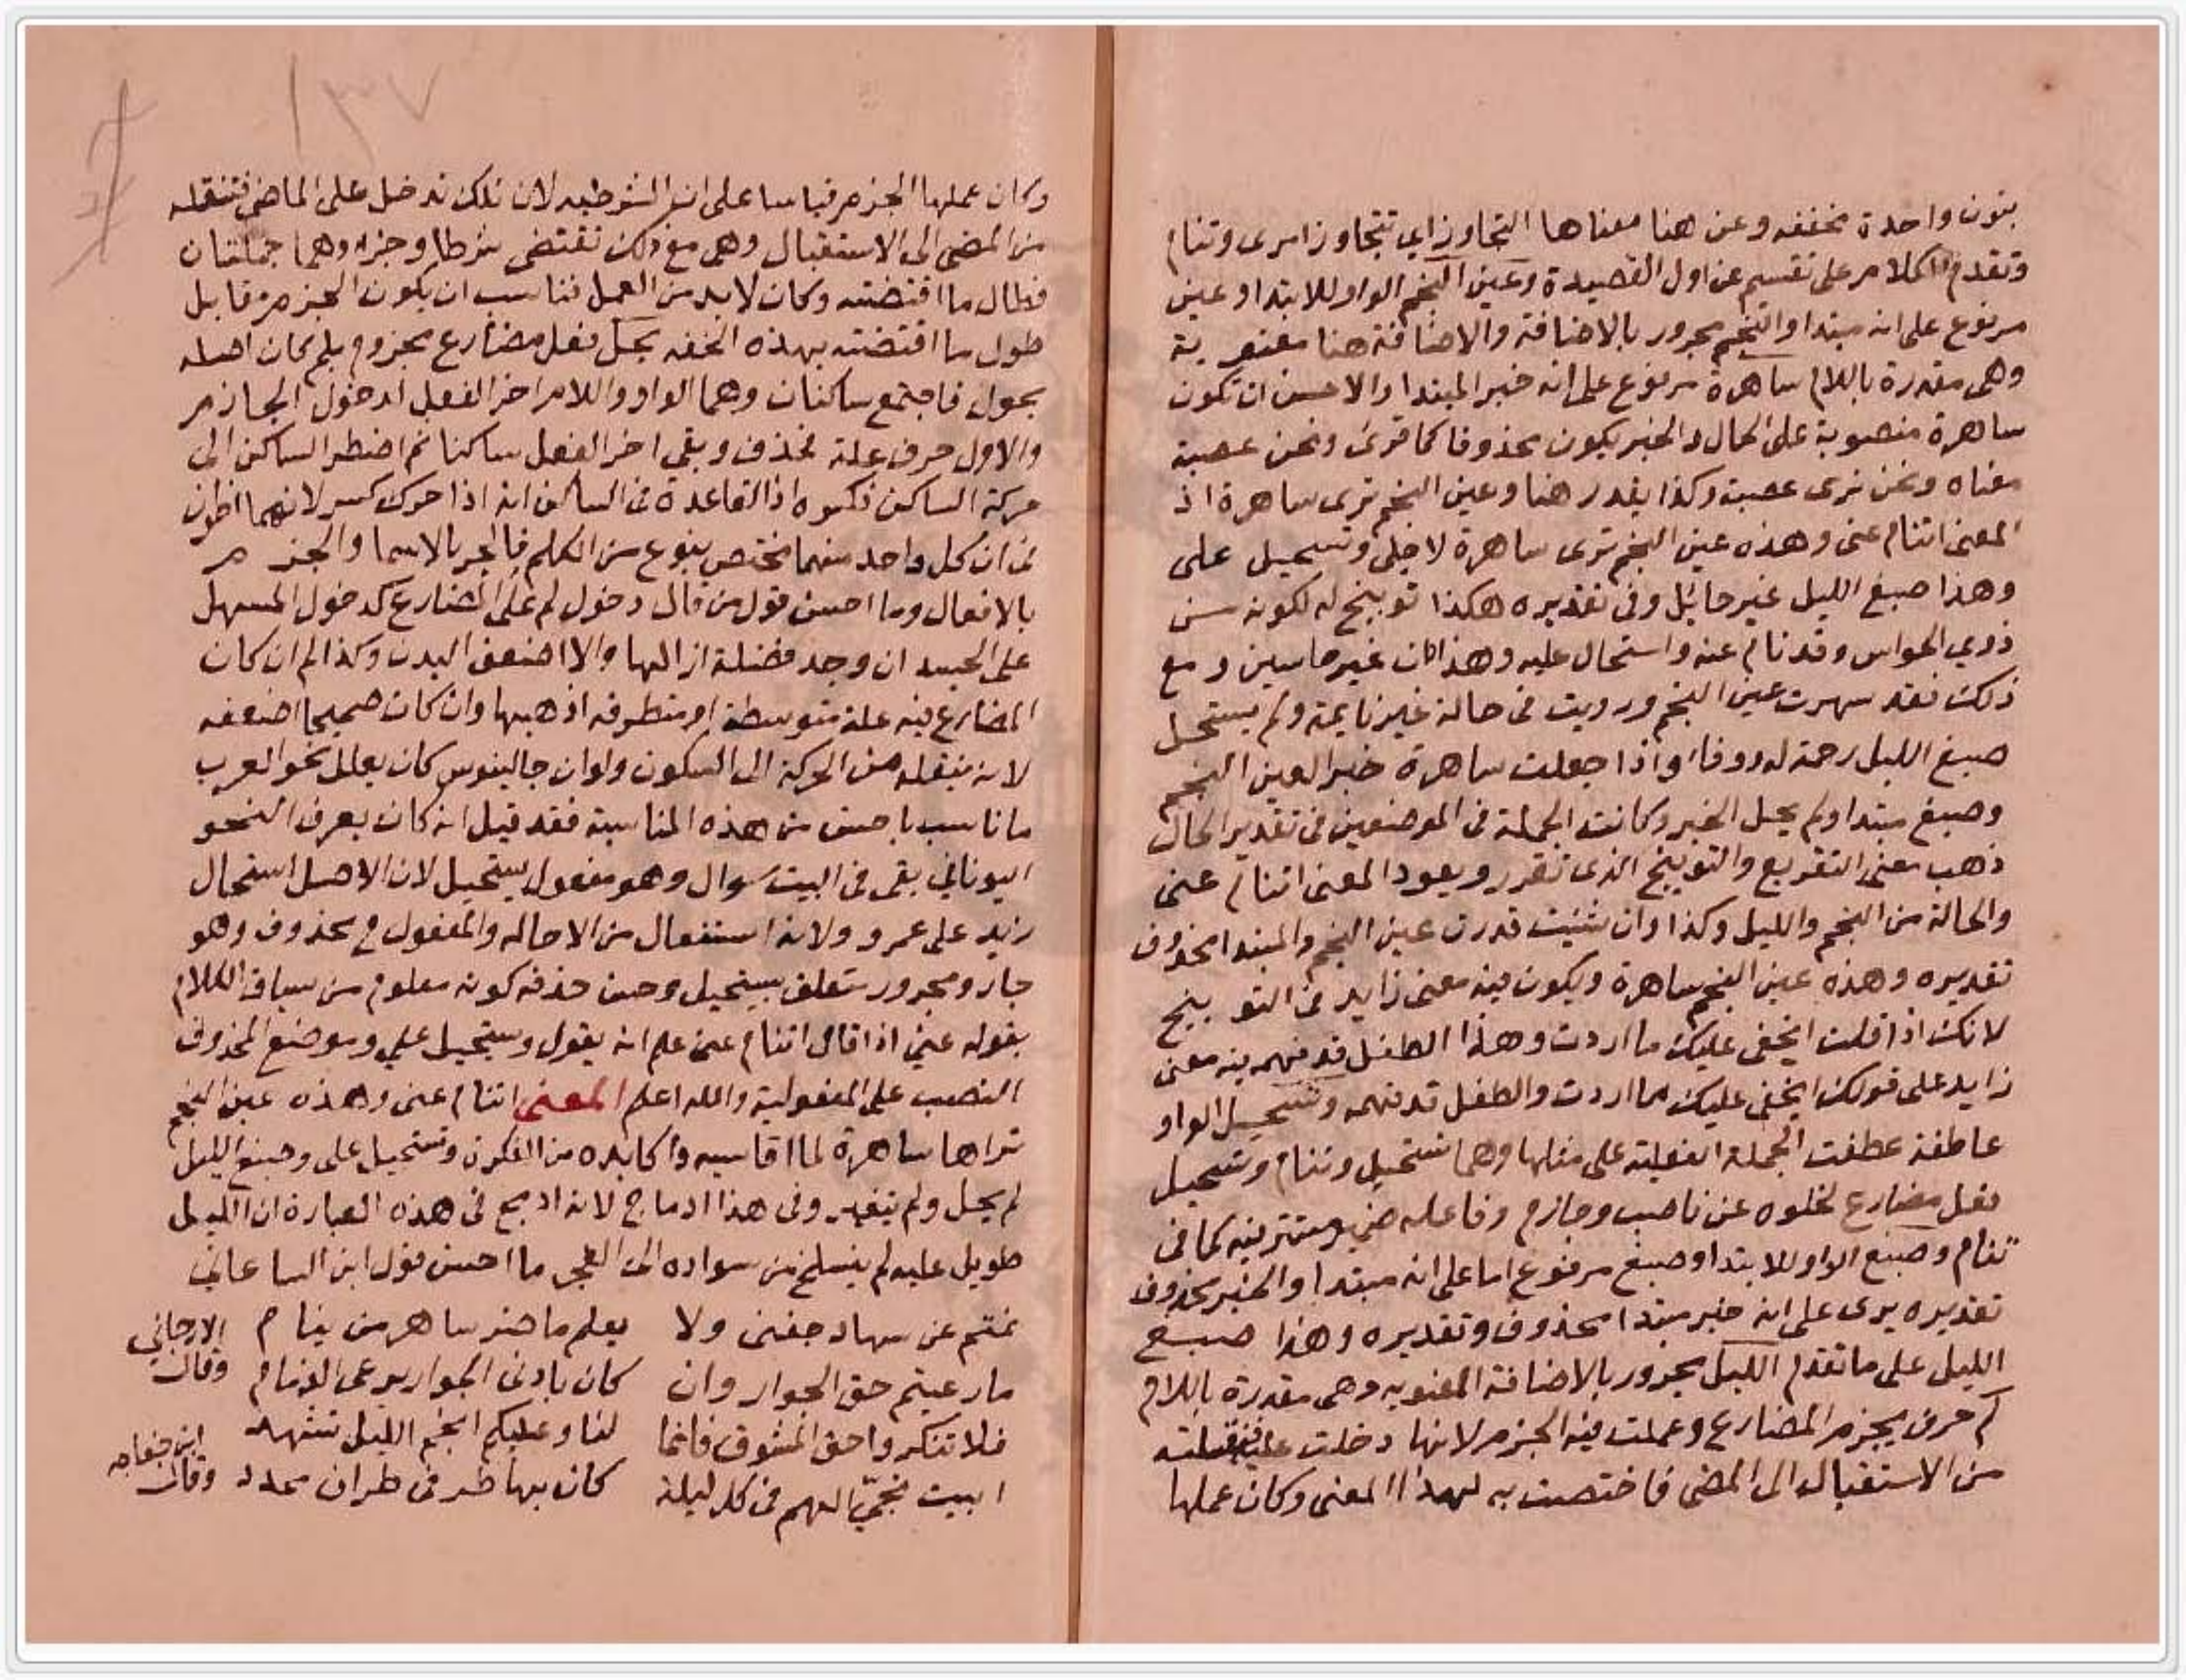 بنون واحدة مخففه وعن هنا معناها التجاوز اي تتجاوز امرى وتنام
وتقدم الكلام على تقسيم عن اول القصيدة وعين النجم الواو للابتدا وعين
مرفوع على انه مبتدا والنجم مجرور بالاضافة والاضافة هنا معنوية
وهى مقدرة باللام ساهرة مرفوع على انه خبر المبتدا والاحسن ان تكون
ساهرة منصوبة على الحال والخبر يكون محذوفا كما قرئ ونحن عصبة
معناه ونحن نرى عصبة وكذا يقدر هنا وعين النجم ترى ساهرة اذ
المعنى اتنام عنى وهذه عين النجم ترى ساهرة لاجلى وتستحيل على
وهذا صبغ الليل غير حائل وفى تقديره هكذا توبيخ له لكونه من
ذوي الحواس وقد نام عنه واستحال عليه وهذان غير حاسين ومع
ذلك فقد سهرت عين النجم ورويت فى حالة غير نايمة ولم يستحل
صبغ الليل رحمة له ورفقا واذا جعلت ساهرة خبر العين النجم
وصبغ مبتدا ولم يحل الخبر وكانت الجملة فى الموضعين فى تقدير الحال
ذهب معنى التقريع والتوبيخ الذى تقرر ويعود المعنى اتنام عنى
والحالة من النجم والليل وكذا وان شئت قدرت عين النجم والمبتدا محذوف
تقديره وهذه عين النجم ساهرة ويكون فيه معنى زايد فى التوبيخ
لانك اذا قلت ايخفى عليك ما اردت وهذا الطفل قد فهمه فيه معنى
زايد على قولك ايخفى عليك ما اردت والطفل قد فهمه وتستحيل الواو
عاطفة عطفت الجملة الفعلية على مثلها وهما تستحيل وتنام وتستحيل
فعل مضارع لخلوه عن ناصب وجازم وفاعله ضمير مستتر فيه كما فى
تنام وصبغ الواو للابتدا وصبغ مرفوع اما على انه مبتدا والخبر محذوف
تقديره يرى على انه خبر مبتدا محذوف وتقديره وهذا صبغ
الليل على ما تقدم الليل مجرور بالاضافة المعنويه وهى مقدرة باللام
لم حرف يجزم المضارع وعملت فيه الجزم لانها دخلت عليه فنقلته
من الاستقبال الى المضى فاختصت به لهذا المعنى وكان عملها
١٣٧
وكان عملها الجزم قياسا على ان الشرطيه لان تلك تدخل على الماضى فتنقله
من المضى الى الاستقبال وهى مع ذلك تقتضى شرطا وجزا وهما جملتان
فطال ما اقتضته وكان لا بد من العمل فناسب ان يكون الجزم مقابل
طول ما اقتضته بهذه الخفه يحل فعل مضارع مجزوم بلم كان اصله
يحول فاجتمع ساكنان وهما الواو واللام اخر الفعل لدخول الجازم
والاول حرف علة فحذف وبقى اخر الفعل ساكنا ثم اضطر الساكن الى
حركة الساكن فكسره اذ القاعدة فى الساكن انه اذا حرك كسر لانهما
فى ان كل واحد منهما مختص بنوع من الكلم فالجر بالاسما والجزم
بالافعال وما احسن قول من قال دخول لم على المضارع كدخول المسهل
على الجسد ان وجد فضلة ازالها والا اضعف البدن وكذا لم ان كان
المضارع فيه علة متوسطة او متطرفه اذهبها وان كان صحيحا اضعفه
لانه ينقله من الحركة الى السكون ولو ان جالينوس كان يعلل نحو العرب
ما ناسب باحسن من هذه المناسبة فقد قيل انه كان يعرف النحو
اليوناني بقى فى البيت سوال وهو مفعول يستحيل لان الاصل استحال
زيد على عمرو ولانه استفعال من الاحاله والمفعول محذوف وهو
جار ومجرور متعلق بيستحيل وحسن حذفه كونه معلوم من سياق الكلام
بقوله عني اذا قال اتنام عنى علم انه يقول وتستحيل علي وموضع المحذوف
النصب على المفعولية والله اعلم المعنى اتنام عنى وهذه عين النجم
تراها ساهرة لما اقاسيه واكابده من الفكرة وتستحيل على وصبغ الليل
لم يحل ولم يتغير وفى هذا ادماج لانه ادمج فى هذه العبارة ان الليل
طويل عليه لم ينسلخ من سواده الى الفجر ما احسن قول ابن الساعاتي
نمتم عن سهاد جفنى ولا يعلم ما ضر ساهر من ينام
ما رعيتم حق الجوار وان كان بادنى الجوار يرعى الذمام وقال الارجاني
فلا تنكروا حق المشوق فانما لنا وعليكم انجم الليل تشهد
ابيت نجى الهم فى كل ليلة كان بها طرفى طراف ممدد وقال ابن خفاجه